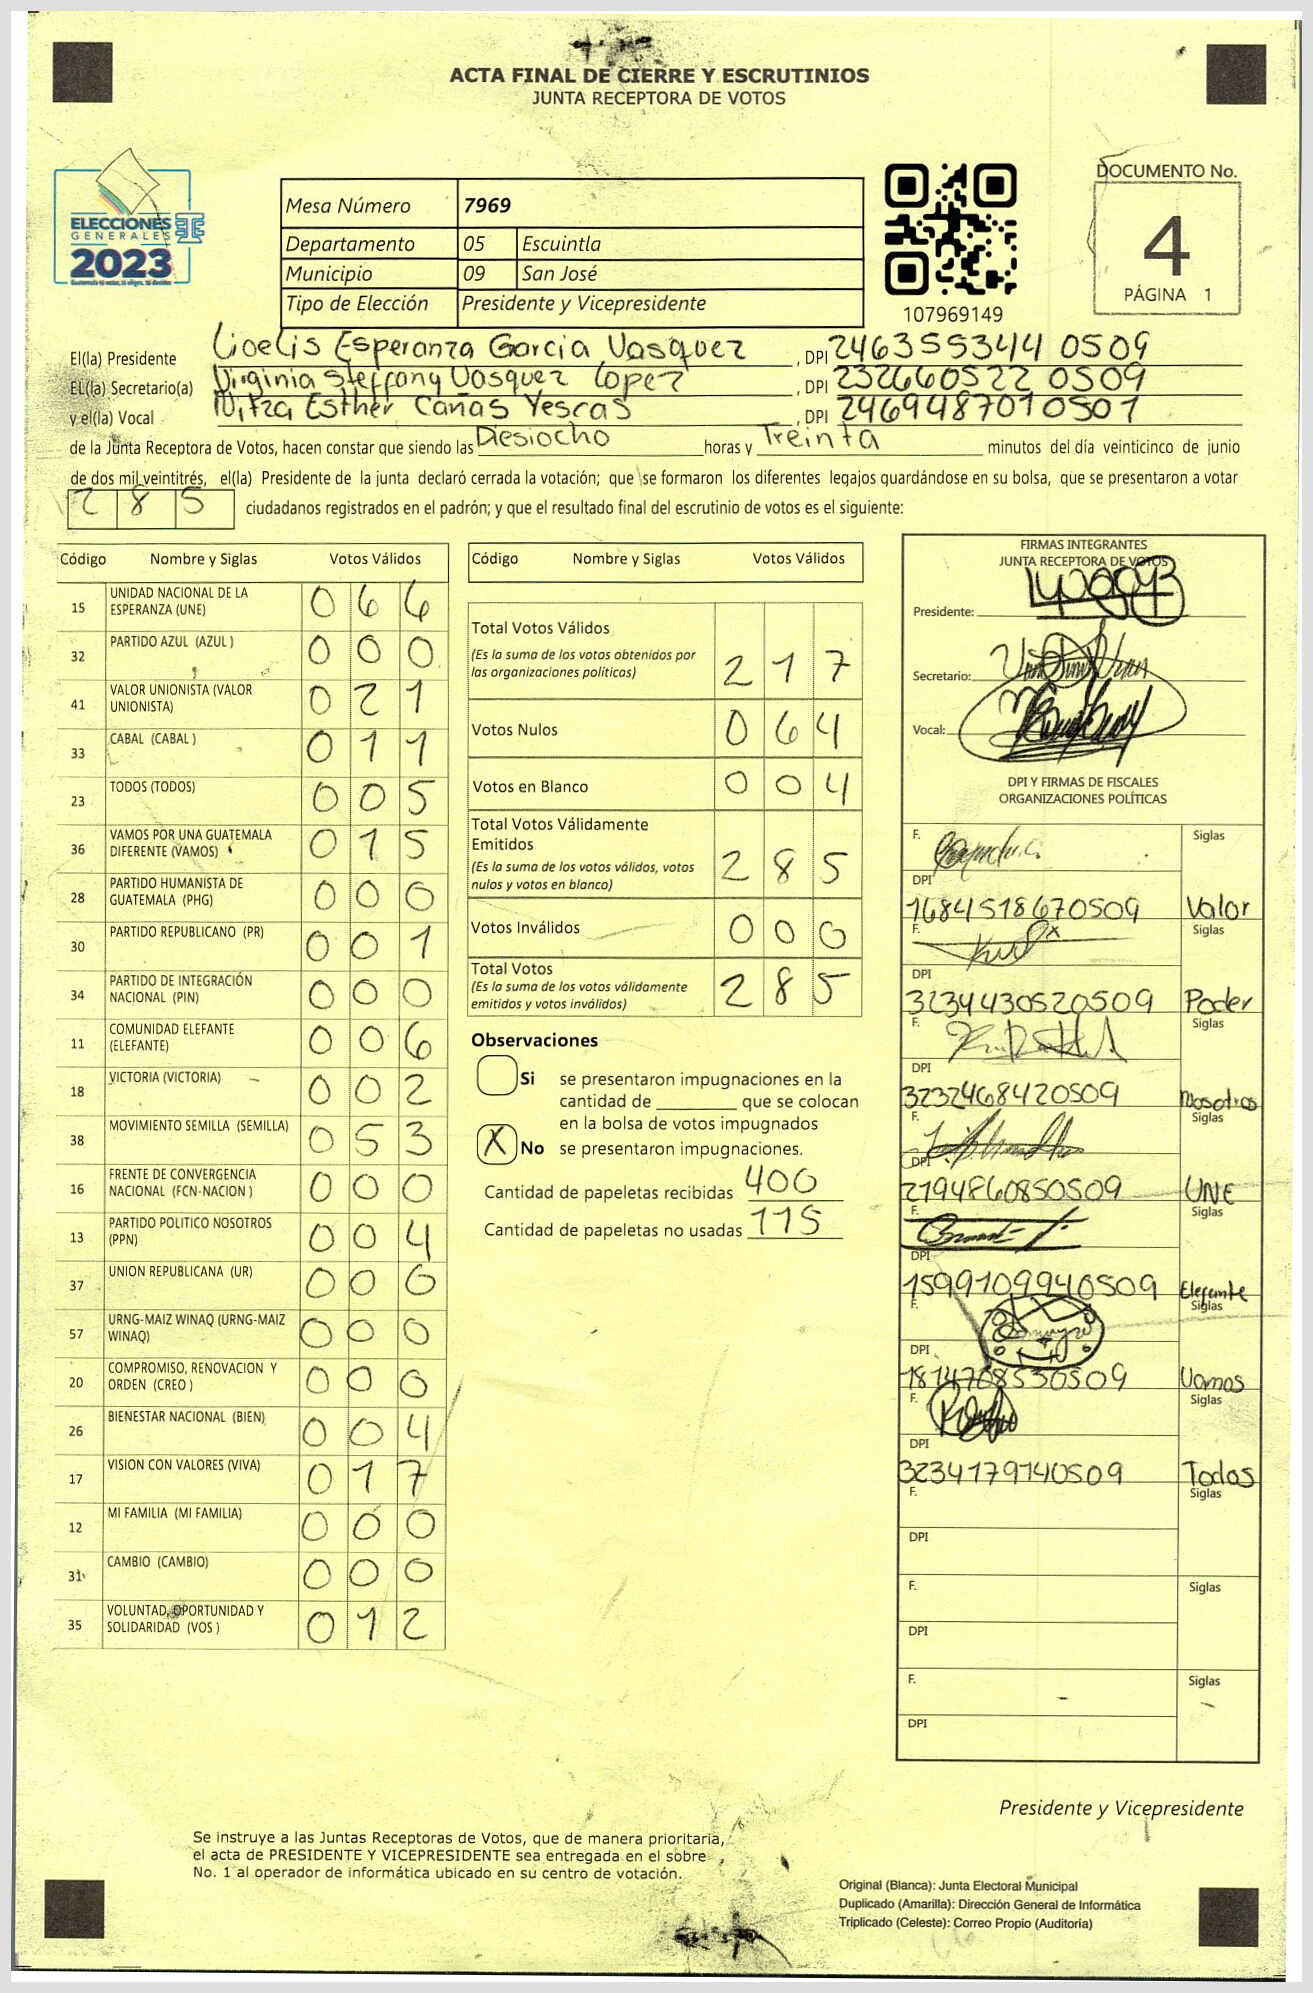 ACTA FINAL DE CIERRE Y ESCRUTINIOS
JUNTA RECEPTORA DE VOTOS
ELECCIONES
GENERALES
2023
Mesa Número 7969
Departamento 05 Escuintla
Municipio 09 San José
Tipo de Elección Presidente y Vicepresidente
107969149
DOCUMENTO No.
4
PÁGINA 1
El(la) Presidente Lioelis Esperanza Garcia Vasquez, DPI 2463553440509
EL(la) Secretario(a) Virginia Steffany Vasquez Lopez, DPI 2326605220509
y el(la) Vocal Nitza Esther Cañas Yescas, DPI 2469487010501
de la Junta Receptora de Votos, hacen constar que siendo las Diesiocho horas y Treinta minutos del día veinticinco de junio
de dos mil veintitrés, el(la) Presidente de la junta declaró cerrada la votación; que se formaron los diferentes legajos quardándose en su bolsa, que se presentaron a votar
285 ciudadanos registrados en el padrón; y que el resultado final del escrutinio de votos es el siguiente:
Código Nombre y Siglas Votos Válidos
15 UNIDAD NACIONAL DE LA ESPERANZA (UNE) 066
32 PARTIDO AZUL (AZUL ) 000
41 VALOR UNIONISTA (VALOR UNIONISTA) 021
33 CABAL (CABAL ) 011
23 TODOS (TODOS) 005
36 VAMOS POR UNA GUATEMALA DIFERENTE (VAMOS) 015
28 PARTIDO HUMANISTA DE GUATEMALA (PHG) 000
30 PARTIDO REPUBLICANO (PR) 001
34 PARTIDO DE INTEGRACIÓN NACIONAL (PIN) 000
11 COMUNIDAD ELEFANTE (ELEFANTE) 006
18 VICTORIA (VICTORIA) 002
38 MOVIMIENTO SEMILLA (SEMILLA) 053
16 FRENTE DE CONVERGENCIA NACIONAL (FCN-NACION ) 000
13 PARTIDO POLITICO NOSOTROS (PPN) 004
37 UNION REPUBLICANA (UR) 000
57 URNG-MAIZ WINAQ (URNG-MAIZ WINAQ) 000
20 COMPROMISO, RENOVACION Y ORDEN (CREO ) 000
26 BIENESTAR NACIONAL (BIEN) 004
17 VISION CON VALORES (VIVA) 017
12 MI FAMILIA (MI FAMILIA) 000
31 CAMBIO (CAMBIO) 000
35 VOLUNTAD, OPORTUNIDAD Y SOLIDARIDAD (VOS ) 012
Código Nombre y Siglas Votos Válidos
Total Votos Válidos 217
(Es la suma de los votos obtenidos por
las organizaciones políticas)
Votos Nulos 064
Votos en Blanco 004
Total Votos Válidamente
Emitidos 285
(Es la suma de los votos válidos, votos
nulos y votos en blanco)
Votos Inválidos 000
Total Votos 285
(Es la suma de los votos válidamente
emitidos y votos inválidos)
Observaciones
Si se presentaron impugnaciones en la
cantidad de ________ que se colocan
en la bolsa de votos impugnados
X No se presentaron impugnaciones.
Cantidad de papeletas recibidas 400
Cantidad de papeletas no usadas 115
FIRMAS INTEGRANTES
JUNTA RECEPTORA DE VOTOS
Presidente:
Secretario:
Vocal:
DPI Y FIRMAS DE FISCALES
ORGANIZACIONES POLÍTICAS
F. Siglas
DPI
1684518670509 Valor
F. Siglas
DPI
3234430520509 Poder
F. Siglas
DPI
3232468420509 Nosotros
F. Siglas
DPI
2194860850509 UNE
F. Siglas
DPI
1599109940509 Elefante
F. Siglas
DPI
1814768530509 Vamos
F. Siglas
DPI
3234179140509 Todos
F. Siglas
DPI
F. Siglas
DPI
F. Siglas
DPI
Presidente y Vicepresidente
Se instruye a las Juntas Receptoras de Votos, que de manera prioritaria,
el acta de PRESIDENTE Y VICEPRESIDENTE sea entregada en el sobre
No. 1 al operador de informática ubicado en su centro de votación.
Original (Blanca): Junta Electoral Municipal
Duplicado (Amarilla): Dirección General de Informática
Triplicado (Celeste): Correo Propio (Auditoría)